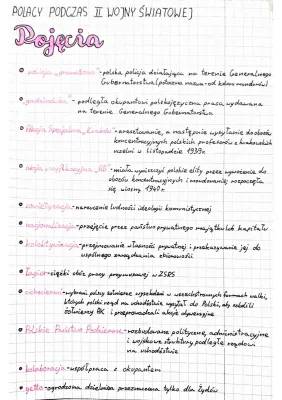 POLACY PODCZAS II WOJNY ŚWIATOWEJ
Pojęcia
policja „granatowa" - polska policja działająca na terenie Generalnego
Gubernatorstwa (potoczna nazwa - od koloru mundurów)
„gadzinówka" - podległa okupantowi polskojęzyczna prasa wydawana
na terenie Generalnego Gubernatorstwa
Akcja Specjalna „Kraków" - aresztowanie, a następnie wysyłanie do obozów
koncentracyjnych polskich profesorów z krakowskich
uczelni w listopadzie 1939r.
akcja pacyfikacyjna „AB" - miała wyniszczyć polskie elity przez wywożenie do
obozów koncentracyjnych i mordowanie; rozpoczęła
się wiosną 1940r.
sowietyzacja - narzucenie ludności ideologii komunistycznej
nacjonalizacja - przejęcie przez państwo prywatnego majątku lub kapitału
kolektywizacja - przejmowanie własności prywatnej i przekazywanie jej do
wspólnego zarządzania chłopom
łagier - ciężki obóz pracy przymusowej w ZSRS
cichociemni - wybrani polscy żołnierze wyszkoleni w wszechstronnych formach walki,
których polski rząd na uchodźstwie wysyłał do Polski, aby szkolili
żołnierzy AK i przeprowadzali akcje dywersyjne
Polskie Państwo Podziemne - rozbudowane polityczne, administracyjne
i wojskowe struktury podległe rządowi
na uchodźstwie
kolaboracja - współpraca z okupantem
getto - ogrodzona dzielnica przeznaczona tylko dla Żydów